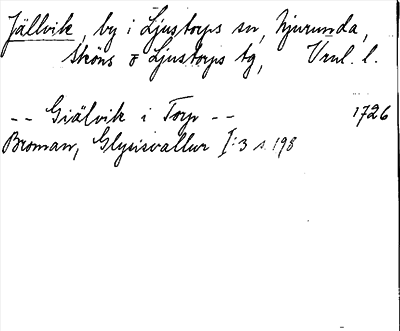 Jällvik, by i Ljustorps sn, Njurunda,
Sköns & Ljustorps tg, Vnl. l.
-- Giälvik i Torp -- 1726
Broman, Glysisvallur I:3 s. 198